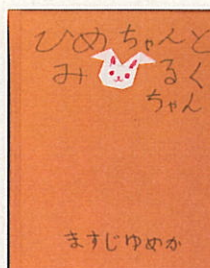 ひめちゃんと
みるく
ちゃん
ますじゆめか